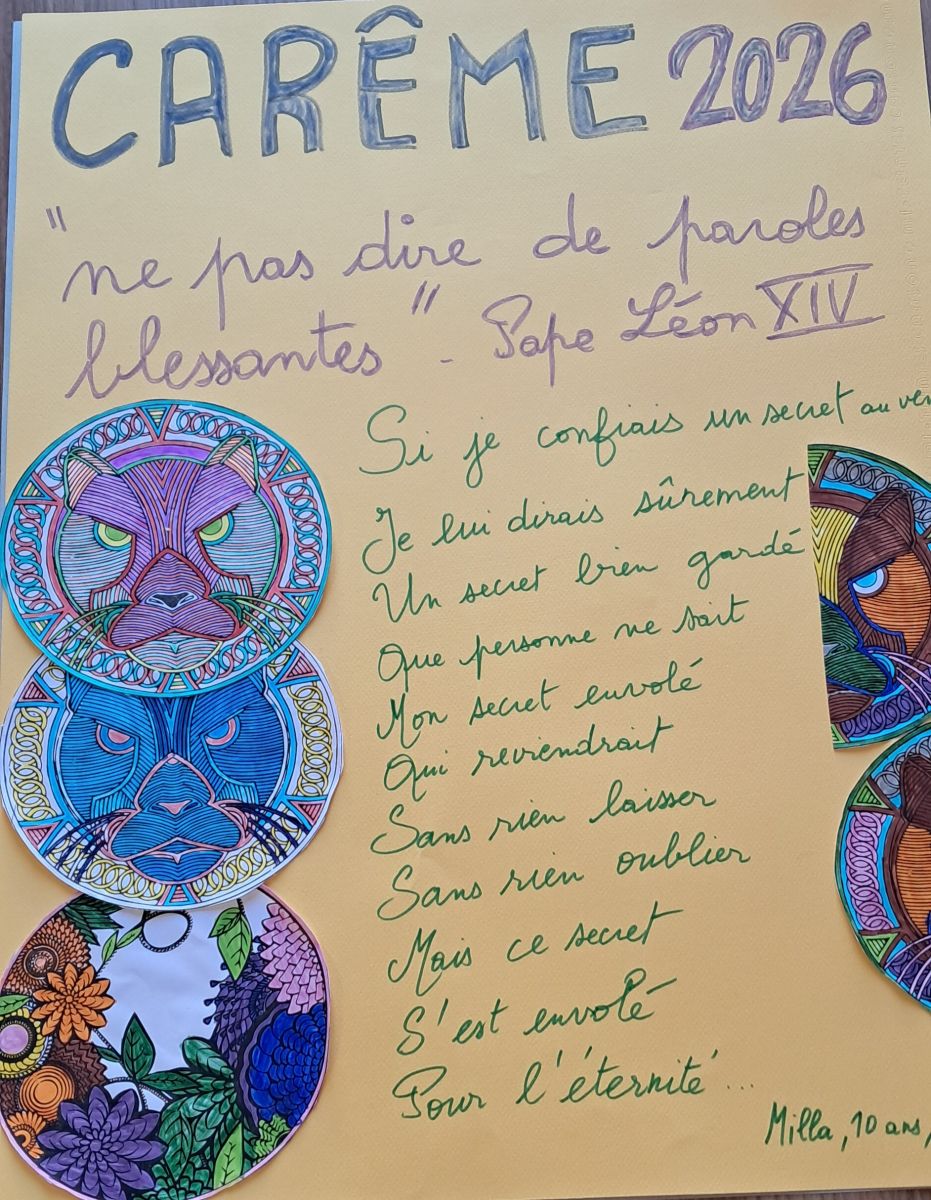 CARÊME 2026
"ne pas dire de paroles
blessantes" - Pape Léon XIV
Si je confiais un secret au
Je lui dirais sûrement
Un secret bien gardé
Que personne ne sait
Mon secret envolé
Qui reviendrait
Sans rien laisser
Sans rien oublier
Mais ce secret
S'est envolé
Pour l'éternité...
Milla, 10 ans,